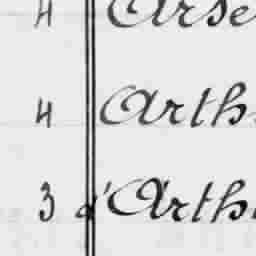 4 Arse
4 Arth
3 d'Arth